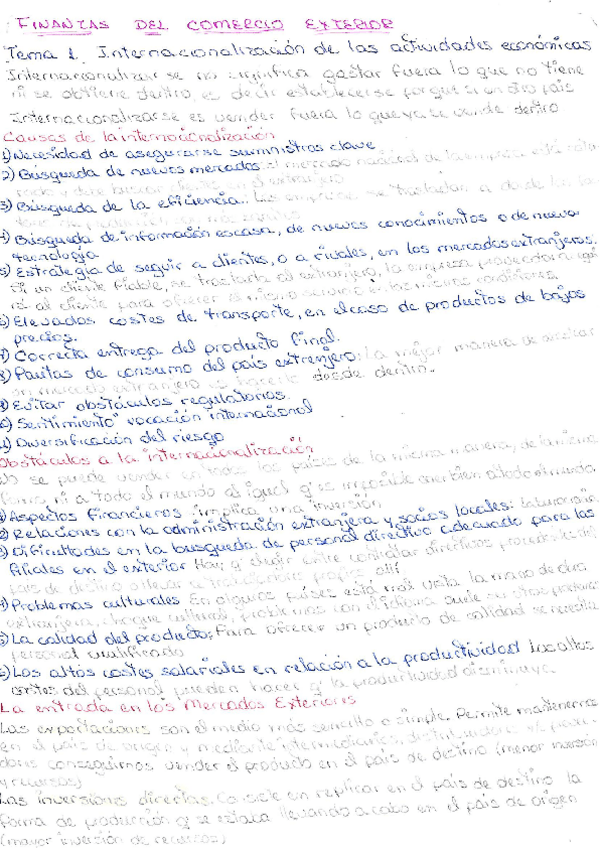 FINANZAS DEL COMERCIO EXTERIOR
Tema 1. Internacionalización de las actividades económicas
Internacionalizarse no significa gastar fuera lo que no tiene
ni se obtiene dentro, es decir establecerse porque si en otro país
Internacionalizarse es vender fuera lo que ya se vende dentro
Causas de la internacionalización
1) Necesidad de asegurarse suministros clave
2) Búsqueda de nuevos mercados: el mercado nacional de la empresa está
en el extranjero
3) Búsqueda de la eficiencia: Las empresas se trasladan a donde
4) Búsqueda de información escasa, de nuevos conocimientos o de nueva
tecnología
5) Estrategia de seguir a clientes, o a rivales, en los mercados extranjeros:
Si un cliente fiable, se traslada al extranjero, la empresa proveedora
al cliente para ofrecer el mismo servicio en las mismas condiciones
6) Elevados costes de transporte, en el caso de productos de bajos
precios.
7) Correcta entrega del producto final.
8) Pautas de consumo del país extranjero: La mejor manera de
un mercado extranjero es hacerlo desde dentro.
9) Evitar obstáculos regulatorios.
10) Sentimiento vocación internacional
11) Diversificación del riesgo
Obstáculos a la internacionalización
No se puede vender en todos los países de la misma manera, de la misma
forma, ni a todo el mundo al igual q es imposible caer bien a todo el mundo.
1) Aspectos financieros implica una inversión
2) Relaciones con la administración extranjera y socios locales:
3) Dificultades en la busqueda de personal directivo adecuado para las
filiales en el exterior Hay q elegir entre contratar directivos procedentes del
país de destino o llevar a trabajadores propios allí
4) Problemas culturales En algunos países está mal vista la mano de obra
extranjera, choque cultural, problemas con el idioma
5) La calidad del producto: Para ofrecer un producto de calidad se necesita
personal cualificado
6) Los altos costes salariales en relación a la productividad Los altos
costes del personal pueden hacer q la productividad disminuya.
La entrada en los Mercados Exteriores
Las exportaciones son el medio más sencillo o simple. Permite mantenernos
en el país de origen y mediante intermediarios, distribuidores
conseguimos vender el producto en el país de destino (menor inversión
y recursos)
Las inversiones directas. Consiste en replicar en el país de destino la
forma de producción q se estaba llevando a cabo en el país de origen
(mayor inversión de recursos)